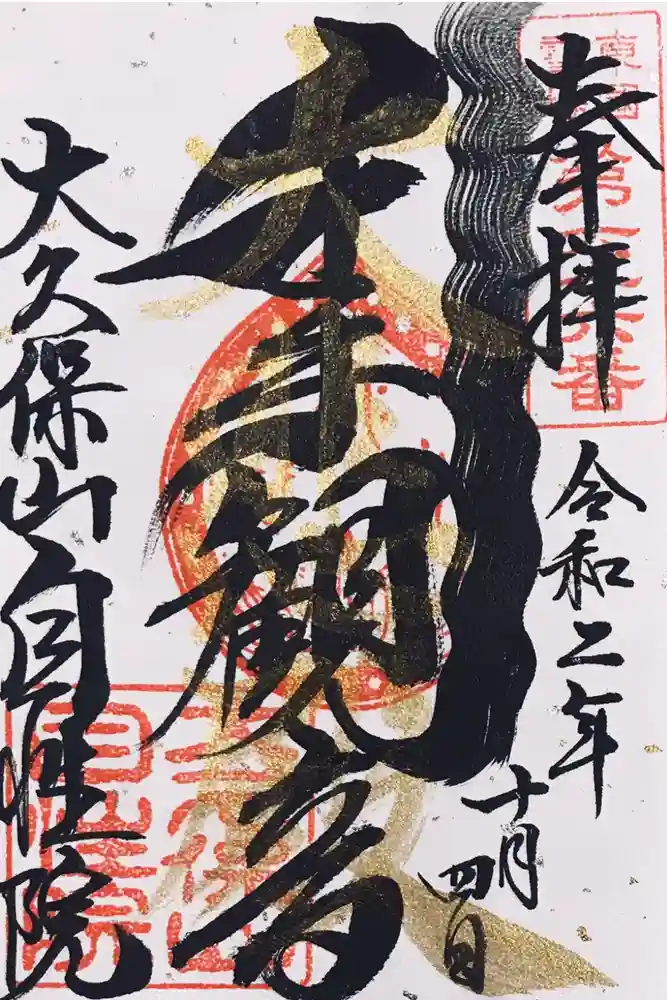 奉拝
令和二年
十月四日
千手觀音
大久保山自性院